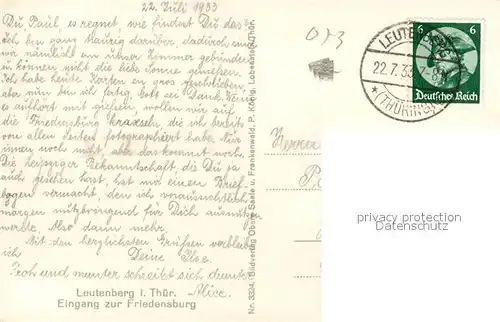 22. Juli 1933
Du, Paul, es regnet, wie findest Du das?
Ich bin ganz traurig darüber, dadurch sind
wir nämlich an unser Zimmer gebunden u.
können nicht die liebe Sonne genießen.
Ich habe heute Karten en gros geschrieben,
aber nun bin ich fertig, Gott sei Dank. Wenn
es aufhört mit gießen, wollen wir auf
die Friedensburg kraxeln, die ich bereits
von allen Seiten fotographiert habe. Nur
innen noch nicht, aber das kommt noch.
Die Leipziger Bekanntschaft, die Du ja
auch gesehen hast, hat mir einen Brief-
vermacht, den ich voraussichtlich
morgen mitbringend für Dich
werde. Also dann mehr.
Mit den herzlichsten Grüßen verbleibe
ich Deine Ilse.
Froh und munter schreibt sich damit
Alice.
Leutenberg i. Thür.
Eingang zur Friedensburg
Nr. 3324 Bildverlag Obere Saale u. Frankenwald, P. König, Lobenstein/Thür.
013
LEUTENBERG
22.7.33
*(THÜRING.)
6 6
Deutsches Reich
Herrn
privacy protection
Datenschutz